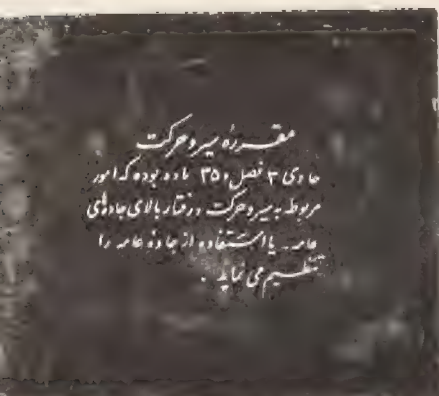 مقرره سیر و حرکت
حاوی ۳ فصل و ۳۵ ماده بوده که امور
مربوط به سیر و حرکت و رفتار بالای جاده های
عامه و یا استفاده از جاده عامه را
تنظیم می نماید .